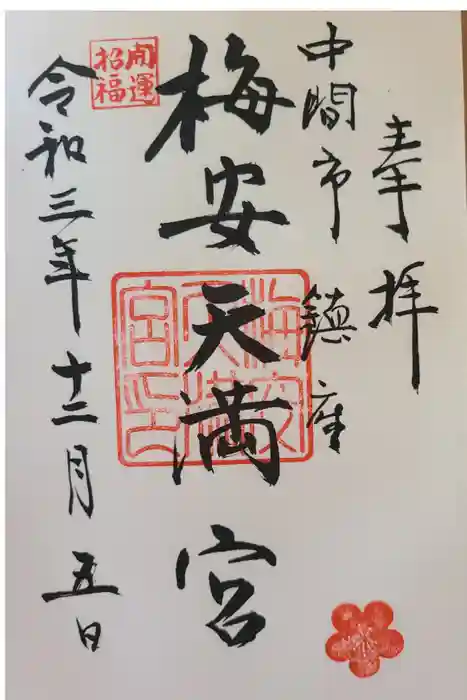 奉拝
中間市鎮座
梅安天満宮
開運
招福
梅安
天満
宮印
令和三年十二月五日